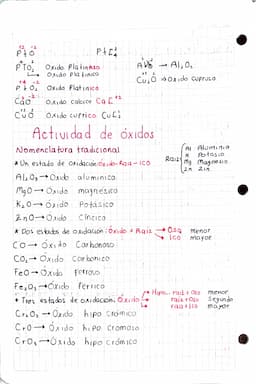 PtO
PtO₂ Óxido Platinoso
Óxido Platínico
PtO₂ Óxido Platínico
CaO Óxido calcico
CuO Óxido cúprico
Al₂O₃
Cu₂O → Óxido cuproso
Actividad de óxidos
Nomenclatura tradicional
* Un estado de oxidación: óxido-Raíz-ICO
Raíz
Al Aluminio
K Potasio
Mg Magnesio
Zn Zin
Al₂O₃ → Óxido aluminico
MgO → Óxido magnezico
K₂O → Óxido Potásico
ZnO → Óxido Cíncico
* Dos estados de oxidación: óxido + Raíz
Oso menor
Ico mayor
CO → Óxido Carbonoso
CO₂ → Óxido Carbonico
FeO → Óxido ferroso
Fe₂O₃ → Óxido férrico
* Tres estados de oxidación: Óxido
raíz + Oso menor
raíz + Oso Segundo
raíz + ICO mayor
Cr₂O₃ → Óxido hipo crómico
CrO → Óxido hipo cromoso
CrO₃ → Óxido hipo crómico